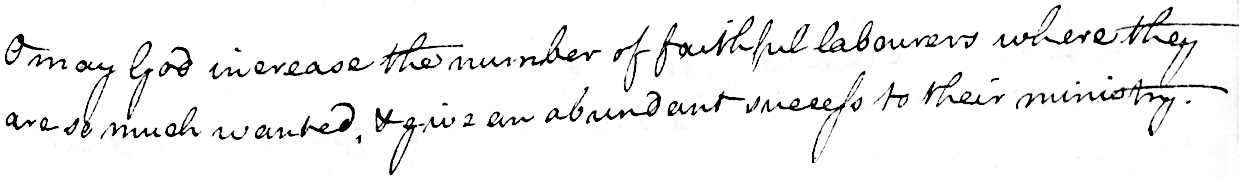 O may God increase the number of faithful labourers where they
are so much wanted, & give an abundant success to their ministry.